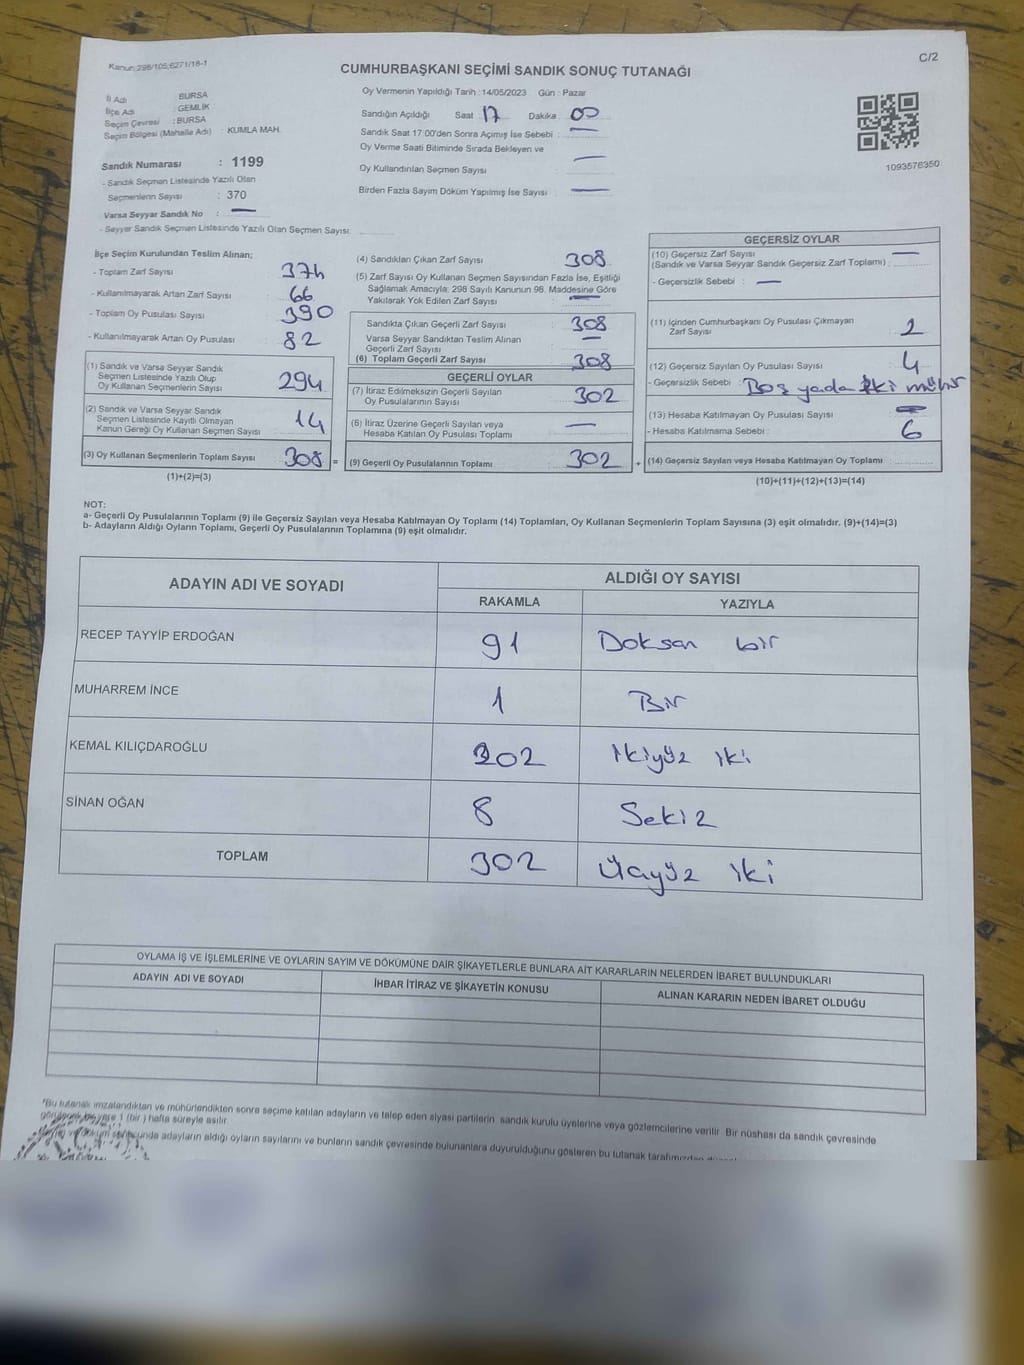 Kanun:298/105;6271/18-1
C/2
CUMHURBAŞKANI SEÇİMİ SANDIK SONUÇ TUTANAĞI
İl Adı : BURSA
İlçe Adı : GEMLİK
Seçim Çevresi : BURSA
Seçim Bölgesi (Mahalle Adı) : KUMLA MAH.
Sandık Numarası : 1199
- Sandık Seçmen Listesinde Yazılı Olan
Seçmenlerin Sayısı : 370
Varsa Seyyar Sandık No : —
- Seyyar Sandık Seçmen Listesinde Yazılı Olan Seçmen Sayısı:
Oy Vermenin Yapıldığı Tarih :14/05/2023 Gün : Pazar
Sandığın Açıldığı Saat 17 Dakika : 00
Sandık Saat 17:00'den Sonra Açımış İse Sebebi : —
Oy Verme Saati Bitiminde Sırada Bekleyen ve
Oy Kullandırılan Seçmen Sayısı : —
Birden Fazla Sayım Döküm Yapılmış İse Sayısı : —
1093576350
İlçe Seçim Kurulundan Teslim Alınan;
- Toplam Zarf Sayısı : 374
- Kullanılmayarak Artan Zarf Sayısı : 66
- Toplam Oy Pusulası Sayısı : 390
- Kullanılmayarak Artan Oy Pusulası : 82
(1) Sandık ve Varsa Seyyar Sandık
Seçmen Listesinde Yazılı Olup
Oy Kullanan Seçmenlerin Sayısı : 294
(2) Sandık ve Varsa Seyyar Sandık
Seçmen Listesinde Kayıtlı Olmayan
Kanun Gereği Oy Kullanan Seçmen Sayısı : 14
(3) Oy Kullanan Seçmenlerin Toplam Sayısı : 308 =
(1)+(2)=(3)
(4) Sandıktan Çıkan Zarf Sayısı : 308
(5) Zarf Sayısı Oy Kullanan Seçmen Sayısından Fazla İse, Eşitliği
Sağlamak Amacıyla; 298 Sayılı Kanunun 98. Maddesine Göre
Yakılarak Yok Edilen Zarf Sayısı : —
Sandıkta Çıkan Geçerli Zarf Sayısı : 308
Varsa Seyyar Sandıktan Teslim Alınan
Geçerli Zarf Sayısı : —
(6) Toplam Geçerli Zarf Sayısı : 308
GEÇERLİ OYLAR
(7) İtiraz Edilmeksizin Geçerli Sayılan
Oy Pusulalarının Sayısı : 302
(8) İtiraz Üzerine Geçerli Sayılan veya
Hesaba Katılan Oy Pusulası Toplamı : —
(9) Geçerli Oy Pusulalarının Toplamı : 302 +
GEÇERSİZ OYLAR
(10) Geçersiz Zarf Sayısı : —
(Sandık ve Varsa Seyyar Sandık Geçersiz Zarf Toplamı) :
- Geçersizlik Sebebi : —
(11) İçinden Cumhurbaşkanı Oy Pusulası Çıkmayan
Zarf Sayısı : 2
(12) Geçersiz Sayılan Oy Pusulası Sayısı : 4
- Geçersizlik Sebebi : Boş yada iki mühür
(13) Hesaba Katılmayan Oy Pusulası Sayısı : —
- Hesaba Katılmama Sebebi : 6
(14) Geçersiz Sayılan veya Hesaba Katılmayan Oy Toplamı :
(10)+(11)+(12)+(13)=(14)
NOT:
a- Geçerli Oy Pusulalarının Toplamı (9) ile Geçersiz Sayılan veya Hesaba Katılmayan Oy Toplamı (14) Toplamları, Oy Kullanan Seçmenlerin Toplam Sayısına (3) eşit olmalıdır. (9)+(14)=(3)
b- Adayların Aldığı Oyların Toplamı, Geçerli Oy Pusulalarının Toplamına (9) eşit olmalıdır.
ADAYIN ADI VE SOYADI
ALDIĞI OY SAYISI
RAKAMLA YAZIYLA
RECEP TAYYİP ERDOĞAN 91 Doksan bir
MUHARREM İNCE 1 Bir
KEMAL KILIÇDAROĞLU 202 ikiyüz iki
SİNAN OĞAN 8 Sekiz
TOPLAM 302 Üçyüz iki
OYLAMA İŞ VE İŞLEMLERİNE VE OYLARIN SAYIM VE DÖKÜMÜNE DAİR ŞİKAYETLERLE BUNLARA AİT KARARLARIN NELERDEN İBARET BULUNDUKLARI
ADAYIN ADI VE SOYADI İHBAR İTİRAZ VE ŞİKAYETİN KONUSU ALINAN KARARIN NEDEN İBARET OLDUĞU
*Bu tutanak imzalandıktan ve mühürlendikten sonra seçime katılan adayların ve talep eden siyasi partilerin sandık kurulu üyelerine veya gözlemcilerine verilir. Bir nüshası da sandık çevresinde
görülecek bir yere 1 (bir) hafta süreyle asılır.
döküm sonucunda adayların aldığı oyların sayılarını ve bunların sandık çevresinde bulunanlara duyurulduğunu gösteren bu tutanak tarafımızdan